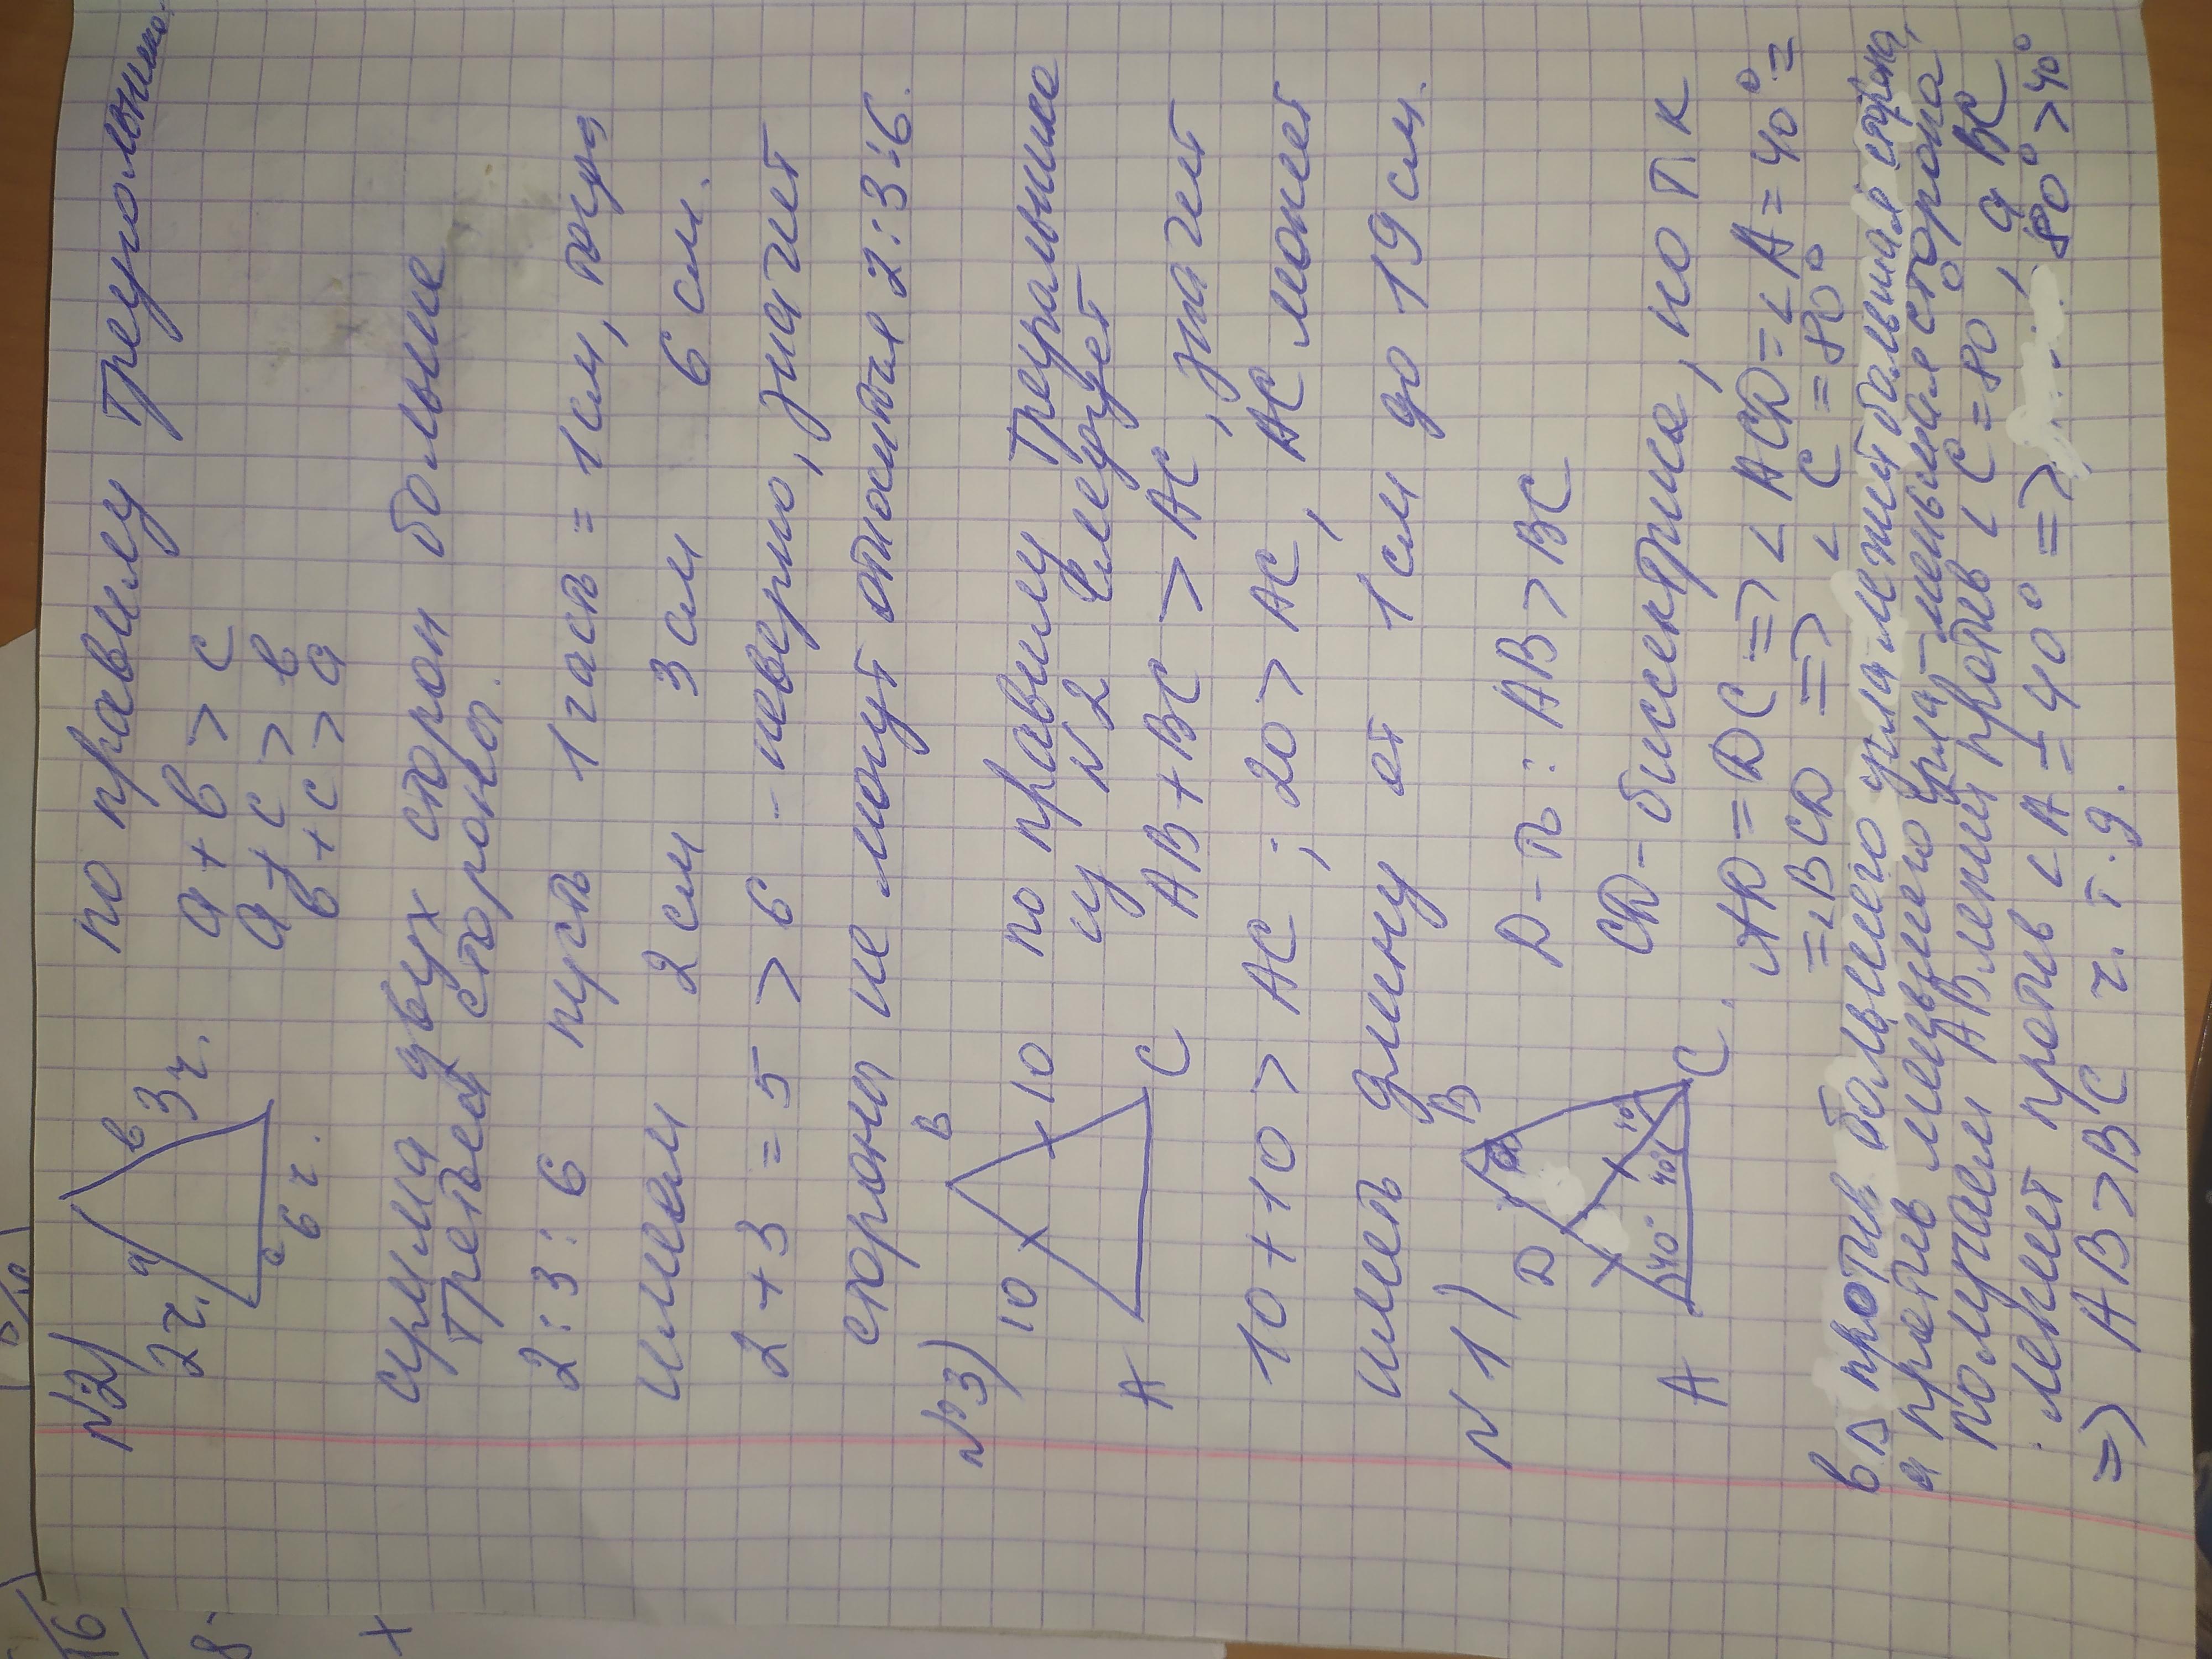 №2) по правилу треугольника.
2ч. а в 3ч. а + в > с
а + с > в
с 6ч. в + с > а
сумма двух сторон больше
третьей стороны.
2:3:6 пусть 1 часть = 1см, тогда
имеем 2см 3см 6см.
2+3 = 5 > 6 - неверно, значит
стороны не могут относится 2:3:6.
№3) В по правилу треугольника
10 10 из №2 следует
А С АВ+ВС > АС, значит
10+10 > АС ; 20 > АС, АС может
иметь длину от 1см до 19см.
№1) В Д-ть: АВ > ВС
D СD-биссектриса, но т к
А 40° 40° С. АD = DС => < АСD = < А = 40° =
= < ВСD => < С = 80°
в Δ против большего угла лежит большая сторона,
а против меньшего угла - меньшая сторона
получаем АВ лежит против < С = 80°, а ВС
лежит против < А = 40° => 80° > 40°
=> АВ > ВС ч. т. д.
16
8-
х